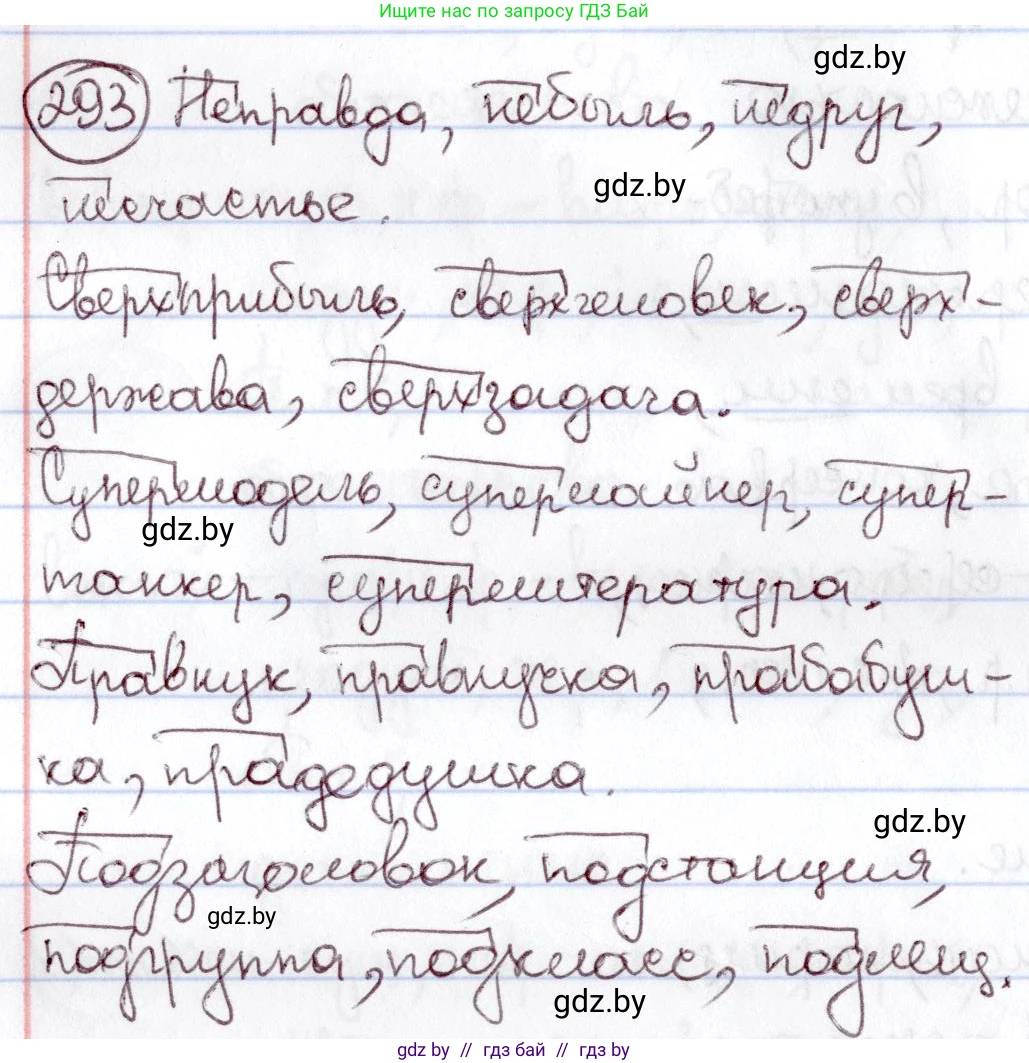 Ищите нас по запросу ГДЗ Бай
gdz.by
293 Неправда, небыль, недруг,
gdz.by
несчастье.
Сверхприбыль, сверхчеловек, сверх-
держава, сверхзадача.
Супермодель, суперлайнер, супер-
gdz.by
танкер, суперлитература.
Правнук, правнучка, прабабуш-
ка, прадедушка.
gdz.by
gdz.by
Подзаголовок, подстанция,
gdz.by
подгруппа, подкласс, подлещ.
gdz.by
gdz.by // гдз бай // gdz.by